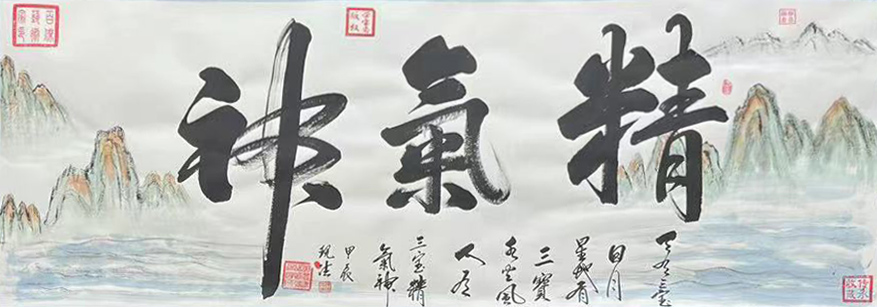 精氣神
天有三宝
日月
星地有
三寶
水火風
人有
三宝精
氣神
甲辰